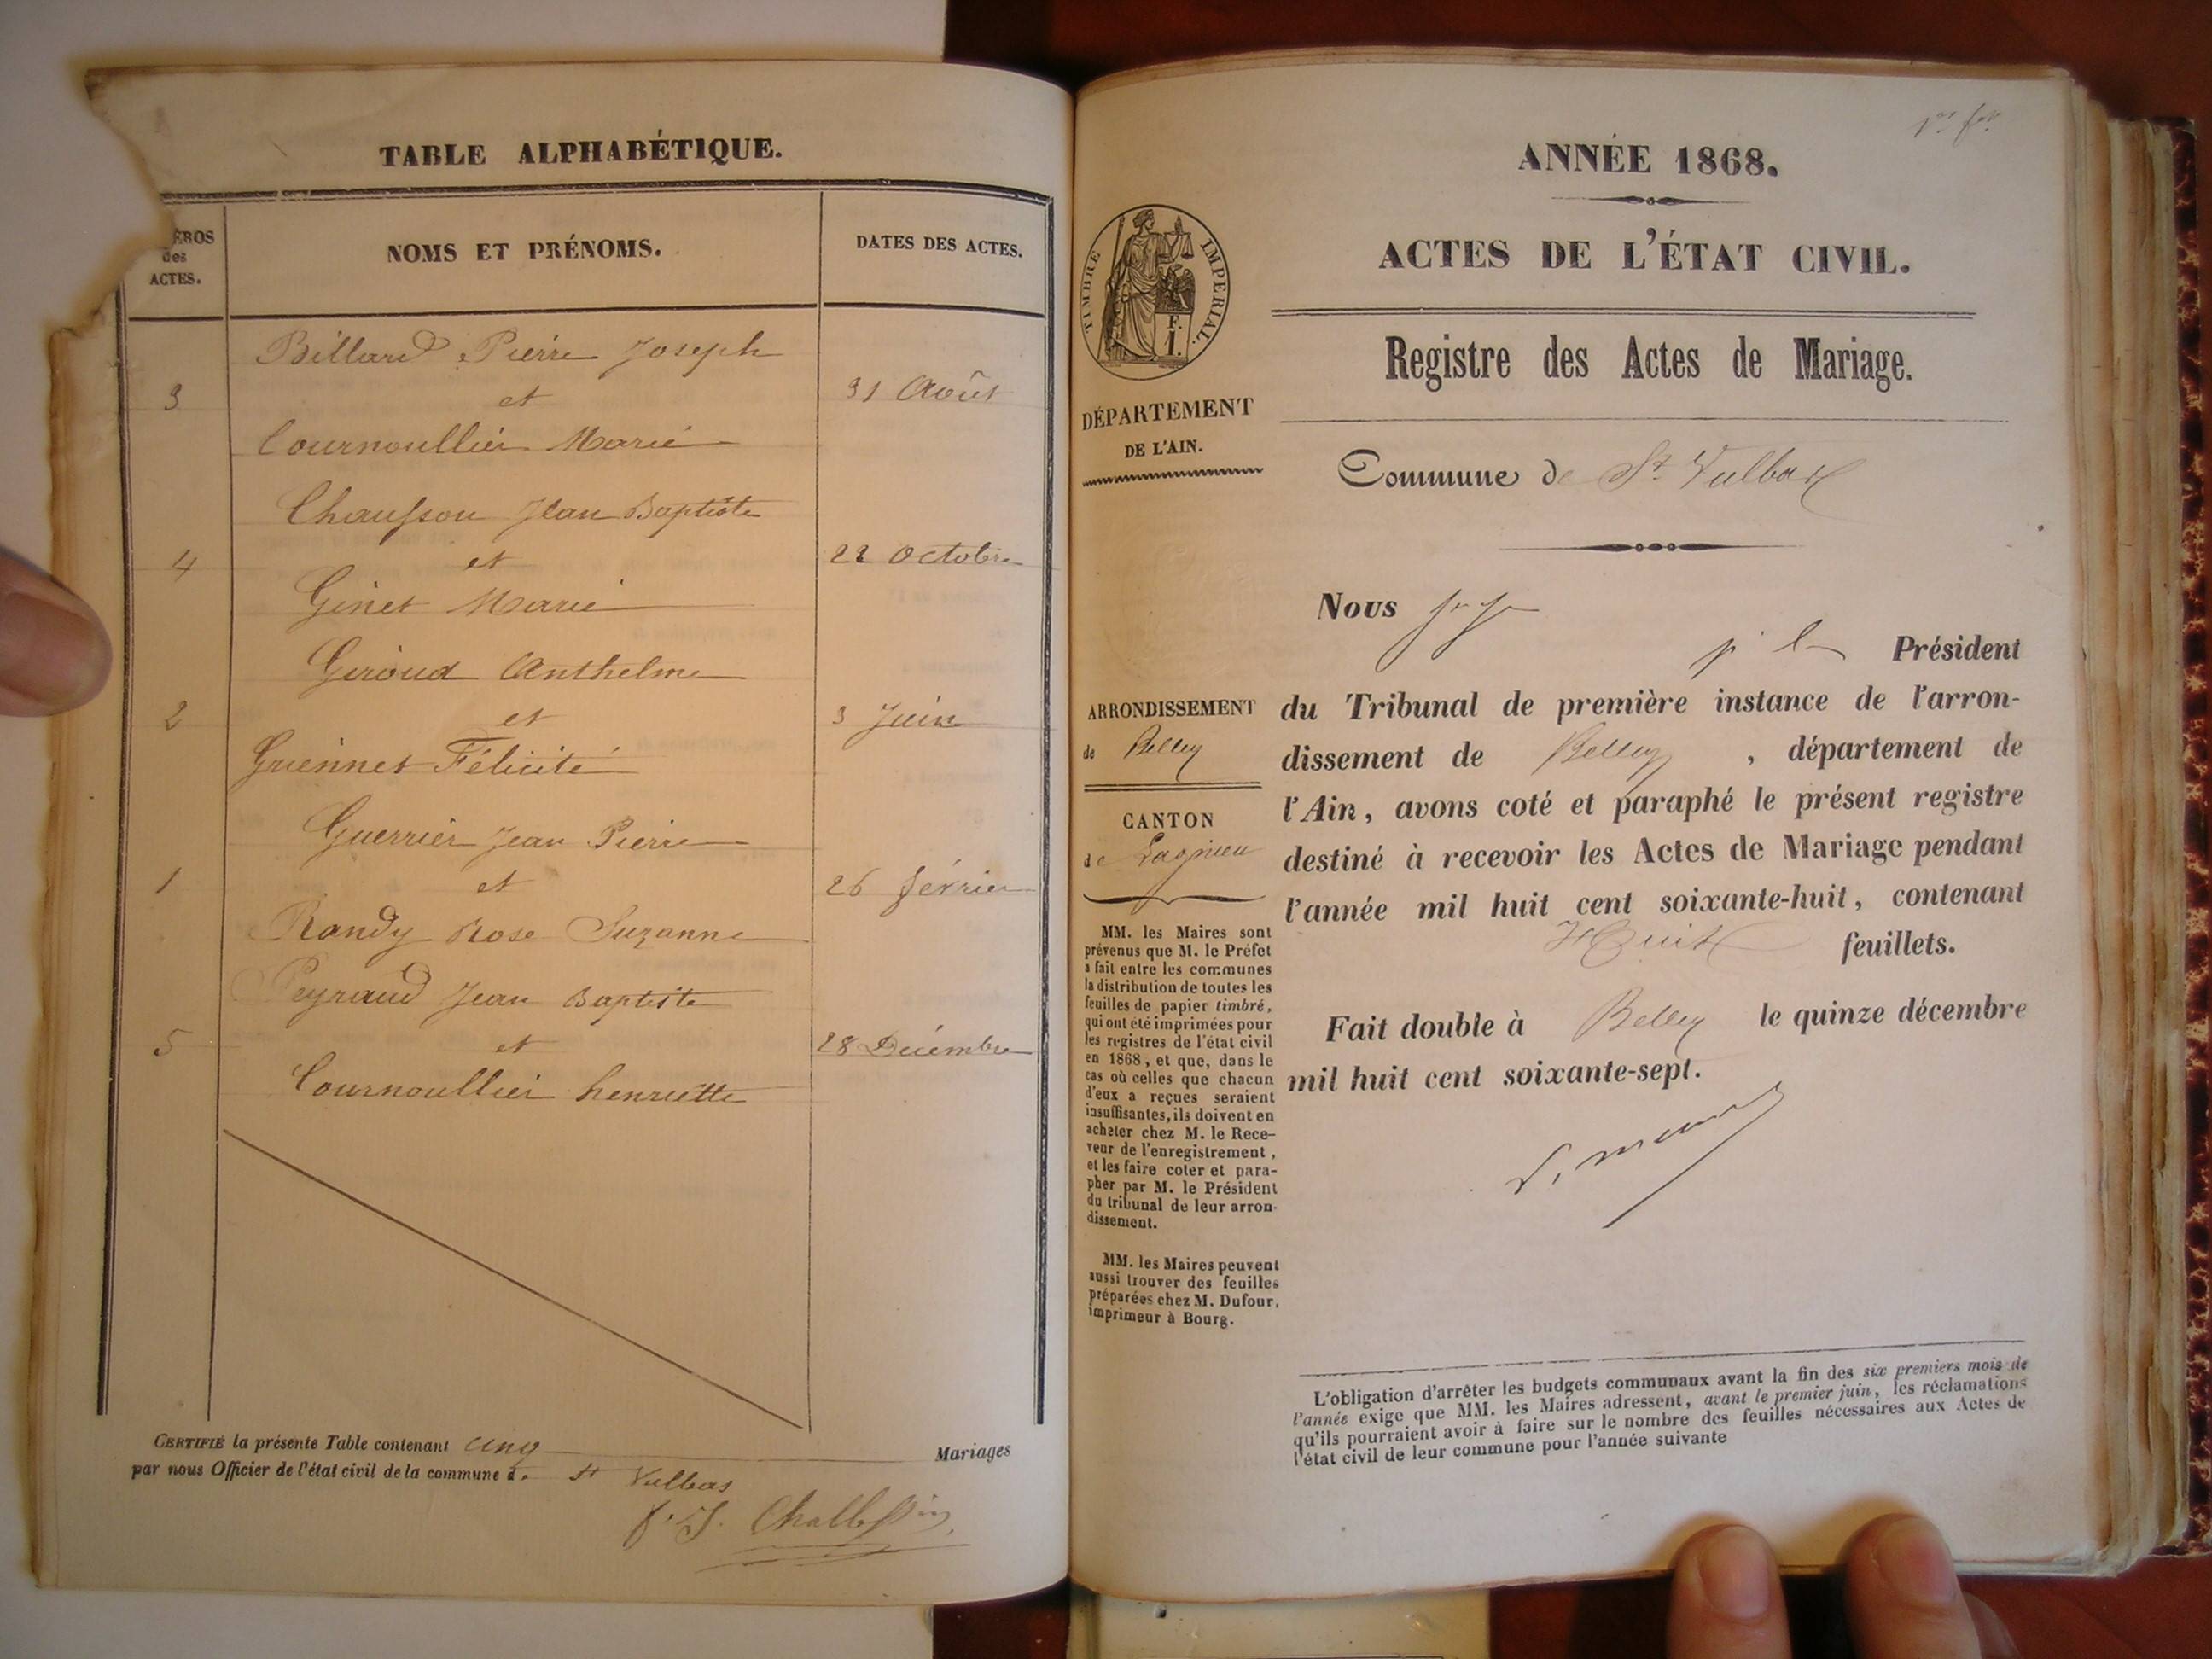 TABLE ALPHABÉTIQUE.
ÉROS
des
ACTES.
NOMS ET PRÉNOMS.
DATES DES ACTES.
Billard Pierre Joseph
3 et 31 Août
Cournoullier Marie
Chausson Jean Baptiste
4 et 22 Octobre
Ginet Marie
Giroud Anthelme
2 et 3 Juin
Guiennet Félicité
Guerrier Jean Pierre
1 et 26 février
Randy Rose Suzanne
Peyraud Jean Baptiste
5 et 28 Décembre
Cournoullier henriette
CERTIFIÉ la présente Table contenant cinq Mariages
par nous Officier de l'état civil de la commune de St Vulbas
1er
ANNÉE 1868.
ACTES DE L'ÉTAT CIVIL.
TIMBRE IMPÉRIAL.
F.
1.
Registre des Actes de Mariage.
DÉPARTEMENT
DE L'AIN.
Commune de St. Vulbas
Nous
Président
ARRONDISSEMENT
de Belley
CANTON
de Lagnieu
du Tribunal de première instance de l'arron-
dissement de Belley, département de
l'Ain, avons coté et paraphé le présent registre
destiné à recevoir les Actes de Mariage pendant
l'année mil huit cent soixante-huit, contenant
Huit feuillets.
Fait double à Belley le quinze décembre
mil huit cent soixante-sept.
MM. les Maires sont
prévenus que M. le Préfet
a fait entre les communes
la distribution de toutes les
feuilles de papier timbré,
qui ont été imprimées pour
les registres de l'état civil
en 1868, et que, dans le
cas où celles que chacun
d'eux a reçues seraient
insuffisantes, ils doivent en
acheter chez M. le Rece-
veur de l'enregistrement,
et les faire coter et para-
pher par M. le Président
du tribunal de leur arron-
dissement.
MM. les Maires peuvent
aussi trouver des feuilles
préparées chez M. Dufour,
imprimeur à Bourg.
L'obligation d'arrêter les budgets communaux avant la fin des six premiers mois de
l'année exige que MM. les Maires adressent, avant le premier juin, les réclamations
qu'ils pourraient avoir à faire sur le nombre des feuilles nécessaires aux Actes de
l'état civil de leur commune pour l'année suivante